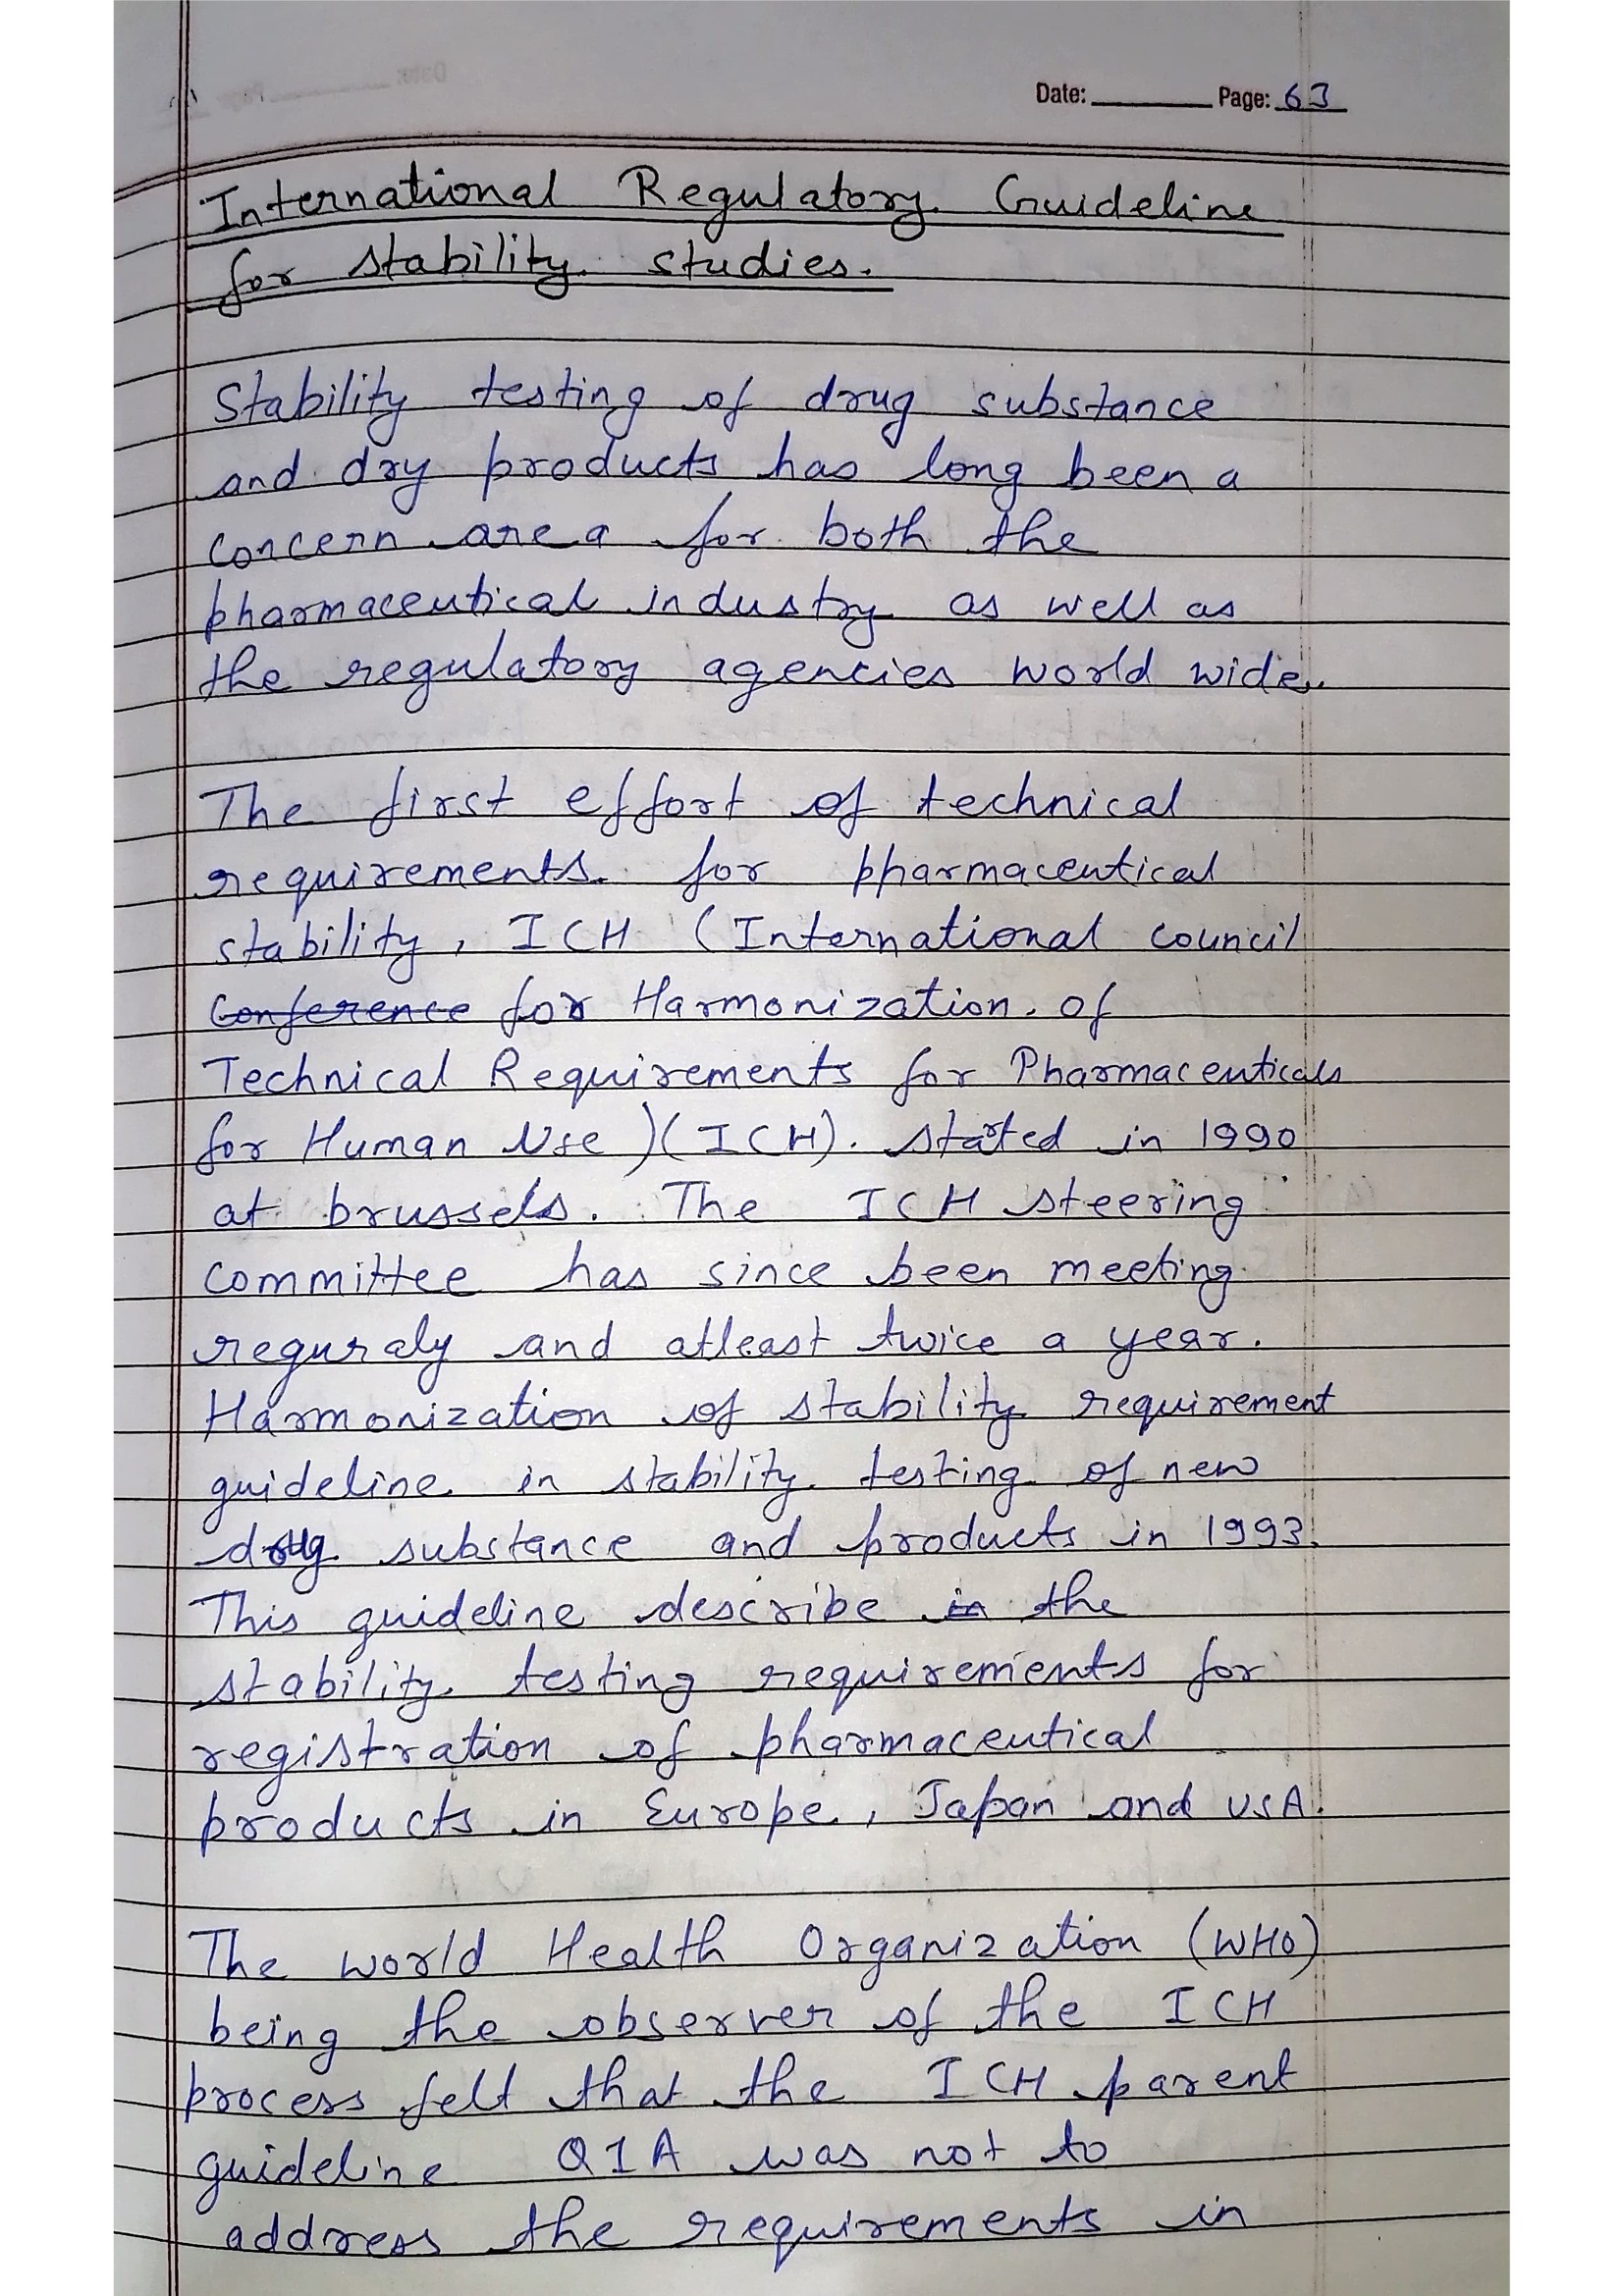 Date: Page: 63
International Regulatory Guideline
for stability studies.
Stability testing of drug substance
and dry products has long been a
concern area for both the
pharmaceutical industry as well as
the regulatory agencies world wide.
The first effort of technical
requirements for pharmaceutical
stability, ICH (International council
Conference for Harmonization of
Technical Requirements for Pharmaceuticals
for Human Use)(ICH). started in 1990
at brussels. The ICH steering
committee has since been meeting
reguraly and atleast twice a year.
Harmonization of stability requirement
guideline in stability testing of new
drug substance and products in 1993.
This guideline describe in the
stability testing requirements for
registration of pharmaceutical
products in Europe, Japan and USA.
The world Health Organization (WHO)
being the observer of the ICH
process felt that the ICH parent
guideline Q1A was not to
address the requirements in